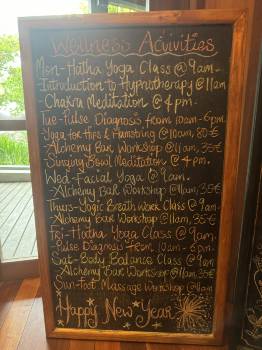 Wellness Activities
Mon-Hatha Yoga Class @ 9am.
-Introduction to Hypnotherapy @ 11am
-Chakra Meditation @ 4pm.
Tue-Pulse Diagnosis from 10am-6pm.
Yoga for Hips & Hamstring @ 10am, 80€
-Alchemy Bar Workshop @ 11am, 35€
-Singing Bowl Meditation @ 4pm.
Wed-Facial Yoga @ 9am.
-Alchemy Bar Workshop @ 11am, 35€
Thurs-Yogic Breath Work Class @ 9am.
-Alchemy Bar Workshop @ 11am, 35€
Fri-Hatha Yoga Class @ 9am.
-Pulse Diagnosis from 10am-6pm.
Sat-Body Balance Class @ 9am
-Alchemy Bar Workshop @ 11am, 35€
Sun-Foot Massage Workshop @ 11am
Happy New Year